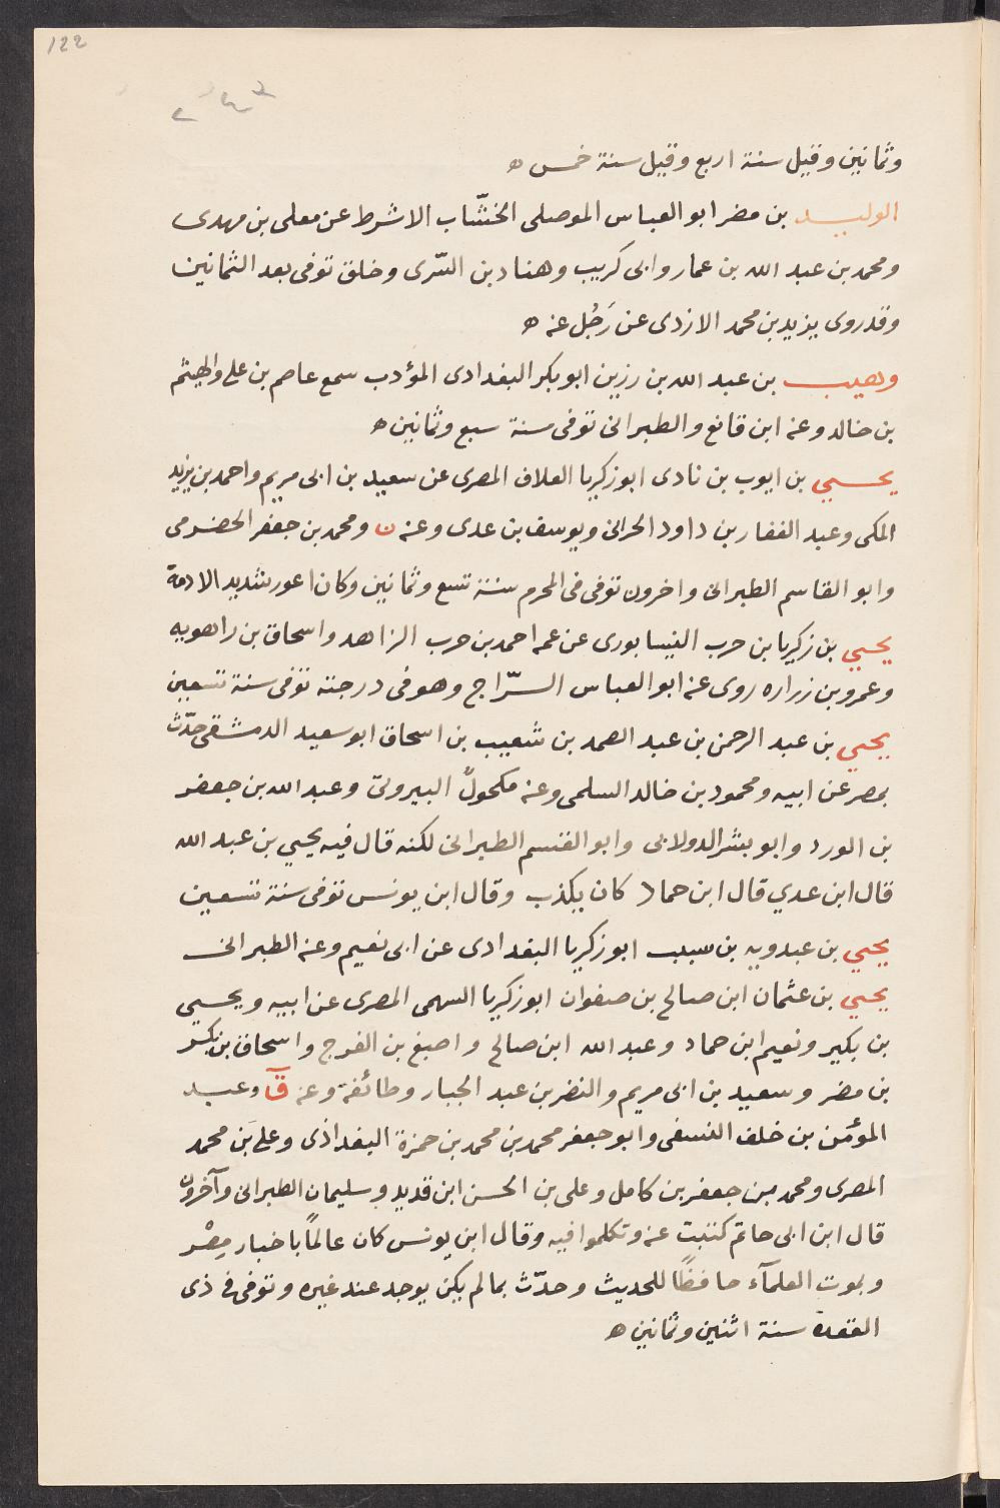 122
وثمانين وقيل سنة اربع وقيل سنة خمس ه
الوليد بن مضر ابو العباس الموصلى الخشّاب الاشرط عن معلى بن مهدى
ومحمد بن عبد الله بن عمار وابى كريب وهناد بن السّرى وخلق توفى بعد الثمانين
وقد روى يزيد بن محمد الازدى عن رَجُل عنه ه
وهيب بن عبد الله بن رزين ابو بكر البغدادى المؤدب سمع عاصم بن على والهيثم
بن خالد وعنه ابن قانع والطبرانى توفى سنة سبع وثمانين ه
يحيي بن ايوب بن نادى ابو زكريا العلاف المصرى عن سعيد بن ابى مريم واحمد بن يزيد
المكى وعبد الغفار بن داود الحرانى ويوسف بن عدى وعنه ن ومحمد بن جعفر الحضرمى
وابو القاسم الطبرانى واخرون توفى فى المحرم سنة تسع وثمانين وكان اعور شديد الادمة
يحيي بن زكريا بن حرب النيسابورى عن عمه احمد بن حرب الزاهد واسحاق بن راهويه
وعمرو بن زراره روى عنه ابو العباس السرّاج وهو فى درجته توفى سنة تسعين
يحيي بن عبد الرحمن بن عبد الصمد بن شعيب بن اسحاق ابو سعيد الدمشقى حدّث
بمصر عن ابيه ومحمود بن خالد السلمى وعنه مكحولٌ البيروتى وعبد الله بن جعفر
بن الورد وابو بشر الدولابى وابو القسم الطبرانى لكنه قال فيه يحيي بن عبد الله
قال ابن عدي قال ابن حماد كان يكذب وقال ابن يونس توفى سنة تسعين
يحيي بن عبدويه بن سبب ابو زكريا البغدادى عن ابى نعيم وعنه الطبرانى
يحيي بن عثمان ابن صالح بن صفوان ابو زكريا السهمى المصرى عن ابيه ويحيي
بن بكير ونعيم ابن حماد وعبد الله ابن صالح واصبغ بن الفرج واسحاق بن بكر
بن مضر وسعيد بن ابى مريم والنضر بن عبد الجبار وطائفة وعنه قٓ وعبد
المؤمن بن خلف النسفى وابو جعفر محمد بن محمد بن حمزة البغدادى وعلى بن محمد
المصرى ومحمد بن جعفر بن كامل وعلى بن الحسن ابن قديد وسليمان الطبرانى وآخرون
قال ابن ابى حاتم كتبت عنه وتكلموا فيه وقال ابن يونس كان عالمًا باخبار مِصْر
وبموت العلمآء حافظًا للحديث وحدّث بما لم يكن يوجد عند غيره وتوفى فى ذى
القعدة سنة اثنين وثمانين ه